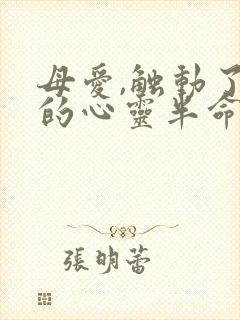 母愛,触動了
的心靈半命
張明蕾